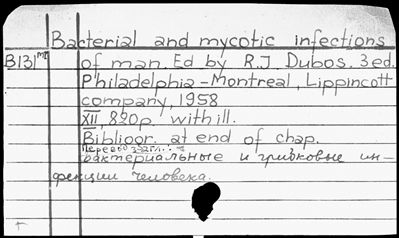 Bacterial and mycotic infections
B131 of man. Ed by R.J. Dubos. 3ed.
Philadelphia - Montreal, Lippincott
company, 1958
XII, 820p. with ill.
Bibliogr. at end of chap.
бактериальные и грибковые ин-
фекции человека.